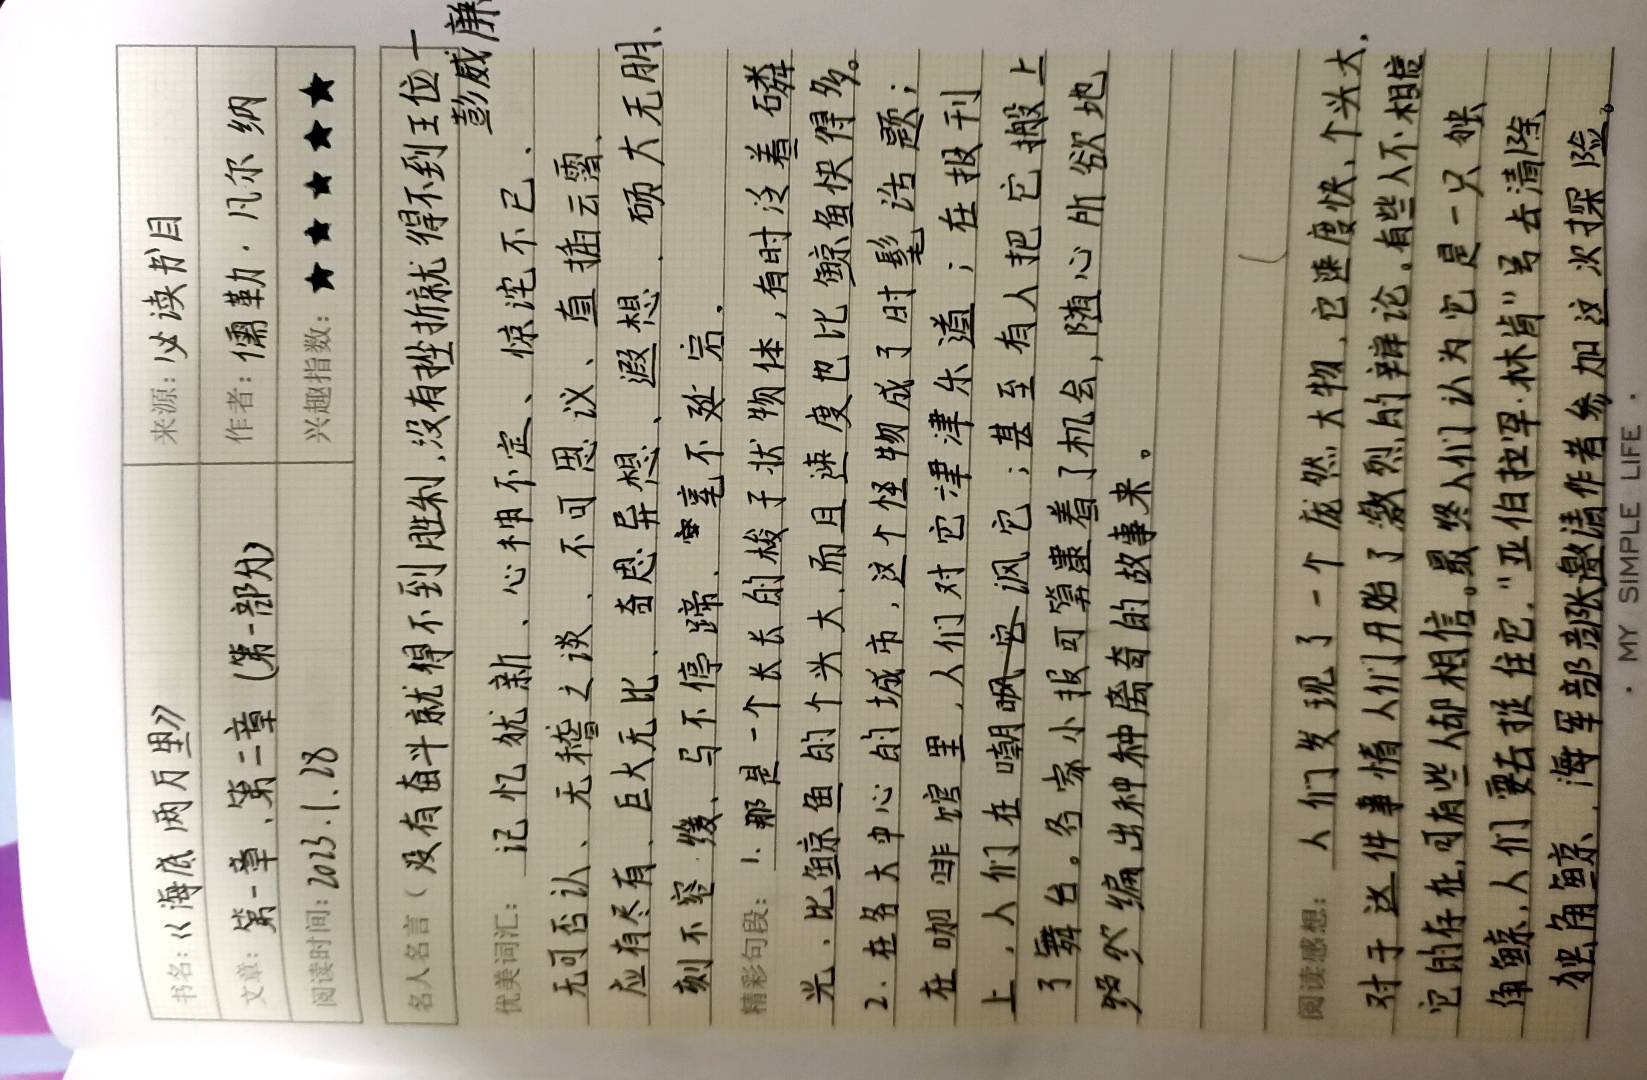 书名:《海底两万里》 来源:必读书目
文章:第一章、第二章(第一部分) 作者:儒勒·凡尔纳
阅读时间:2023.1.28 兴趣指数:★★★★★
名人名言(没有奋斗就得不到胜利,没有挫折就得不到王位一
彭威廉
优美词汇: 记忆犹新、心神不定、惊诧不已、
无可否认、无稽之谈、不可思议、直插云霄、
应有尽有、巨大无比、奇思异想、遐想、硕大无朋、
刻不容缓、马不停蹄、毫不逊完、
精彩句段:1.那是一个长长的梭子状物体,有时泛着磷
光、比鲸鱼的个头大,而且速度也比鲸鱼快得多。
2.在各大中心的城市,这个怪物成了时髦话题;
在咖啡馆里,人们对它津津乐道;在报刊
上,人们在嘲讽它;甚至有人把它搬上
了舞台。各家小报可算逮着了机会,随心所欲地
编出种种离奇的故事来。
阅读感想: 人们发现了一个庞然大物,它速度快、个头大,
对于这件事情人们开始了激烈的辩论。有些人不相信
它的存在,可有些人却相信。最终人们认为它是一只独
角鲸,人们要去捉住它,“亚伯拉罕·林肯”号去清除
独角鲸,海军部部长邀请作者参加这次探险。
· MY SIMPLE LIFE ·